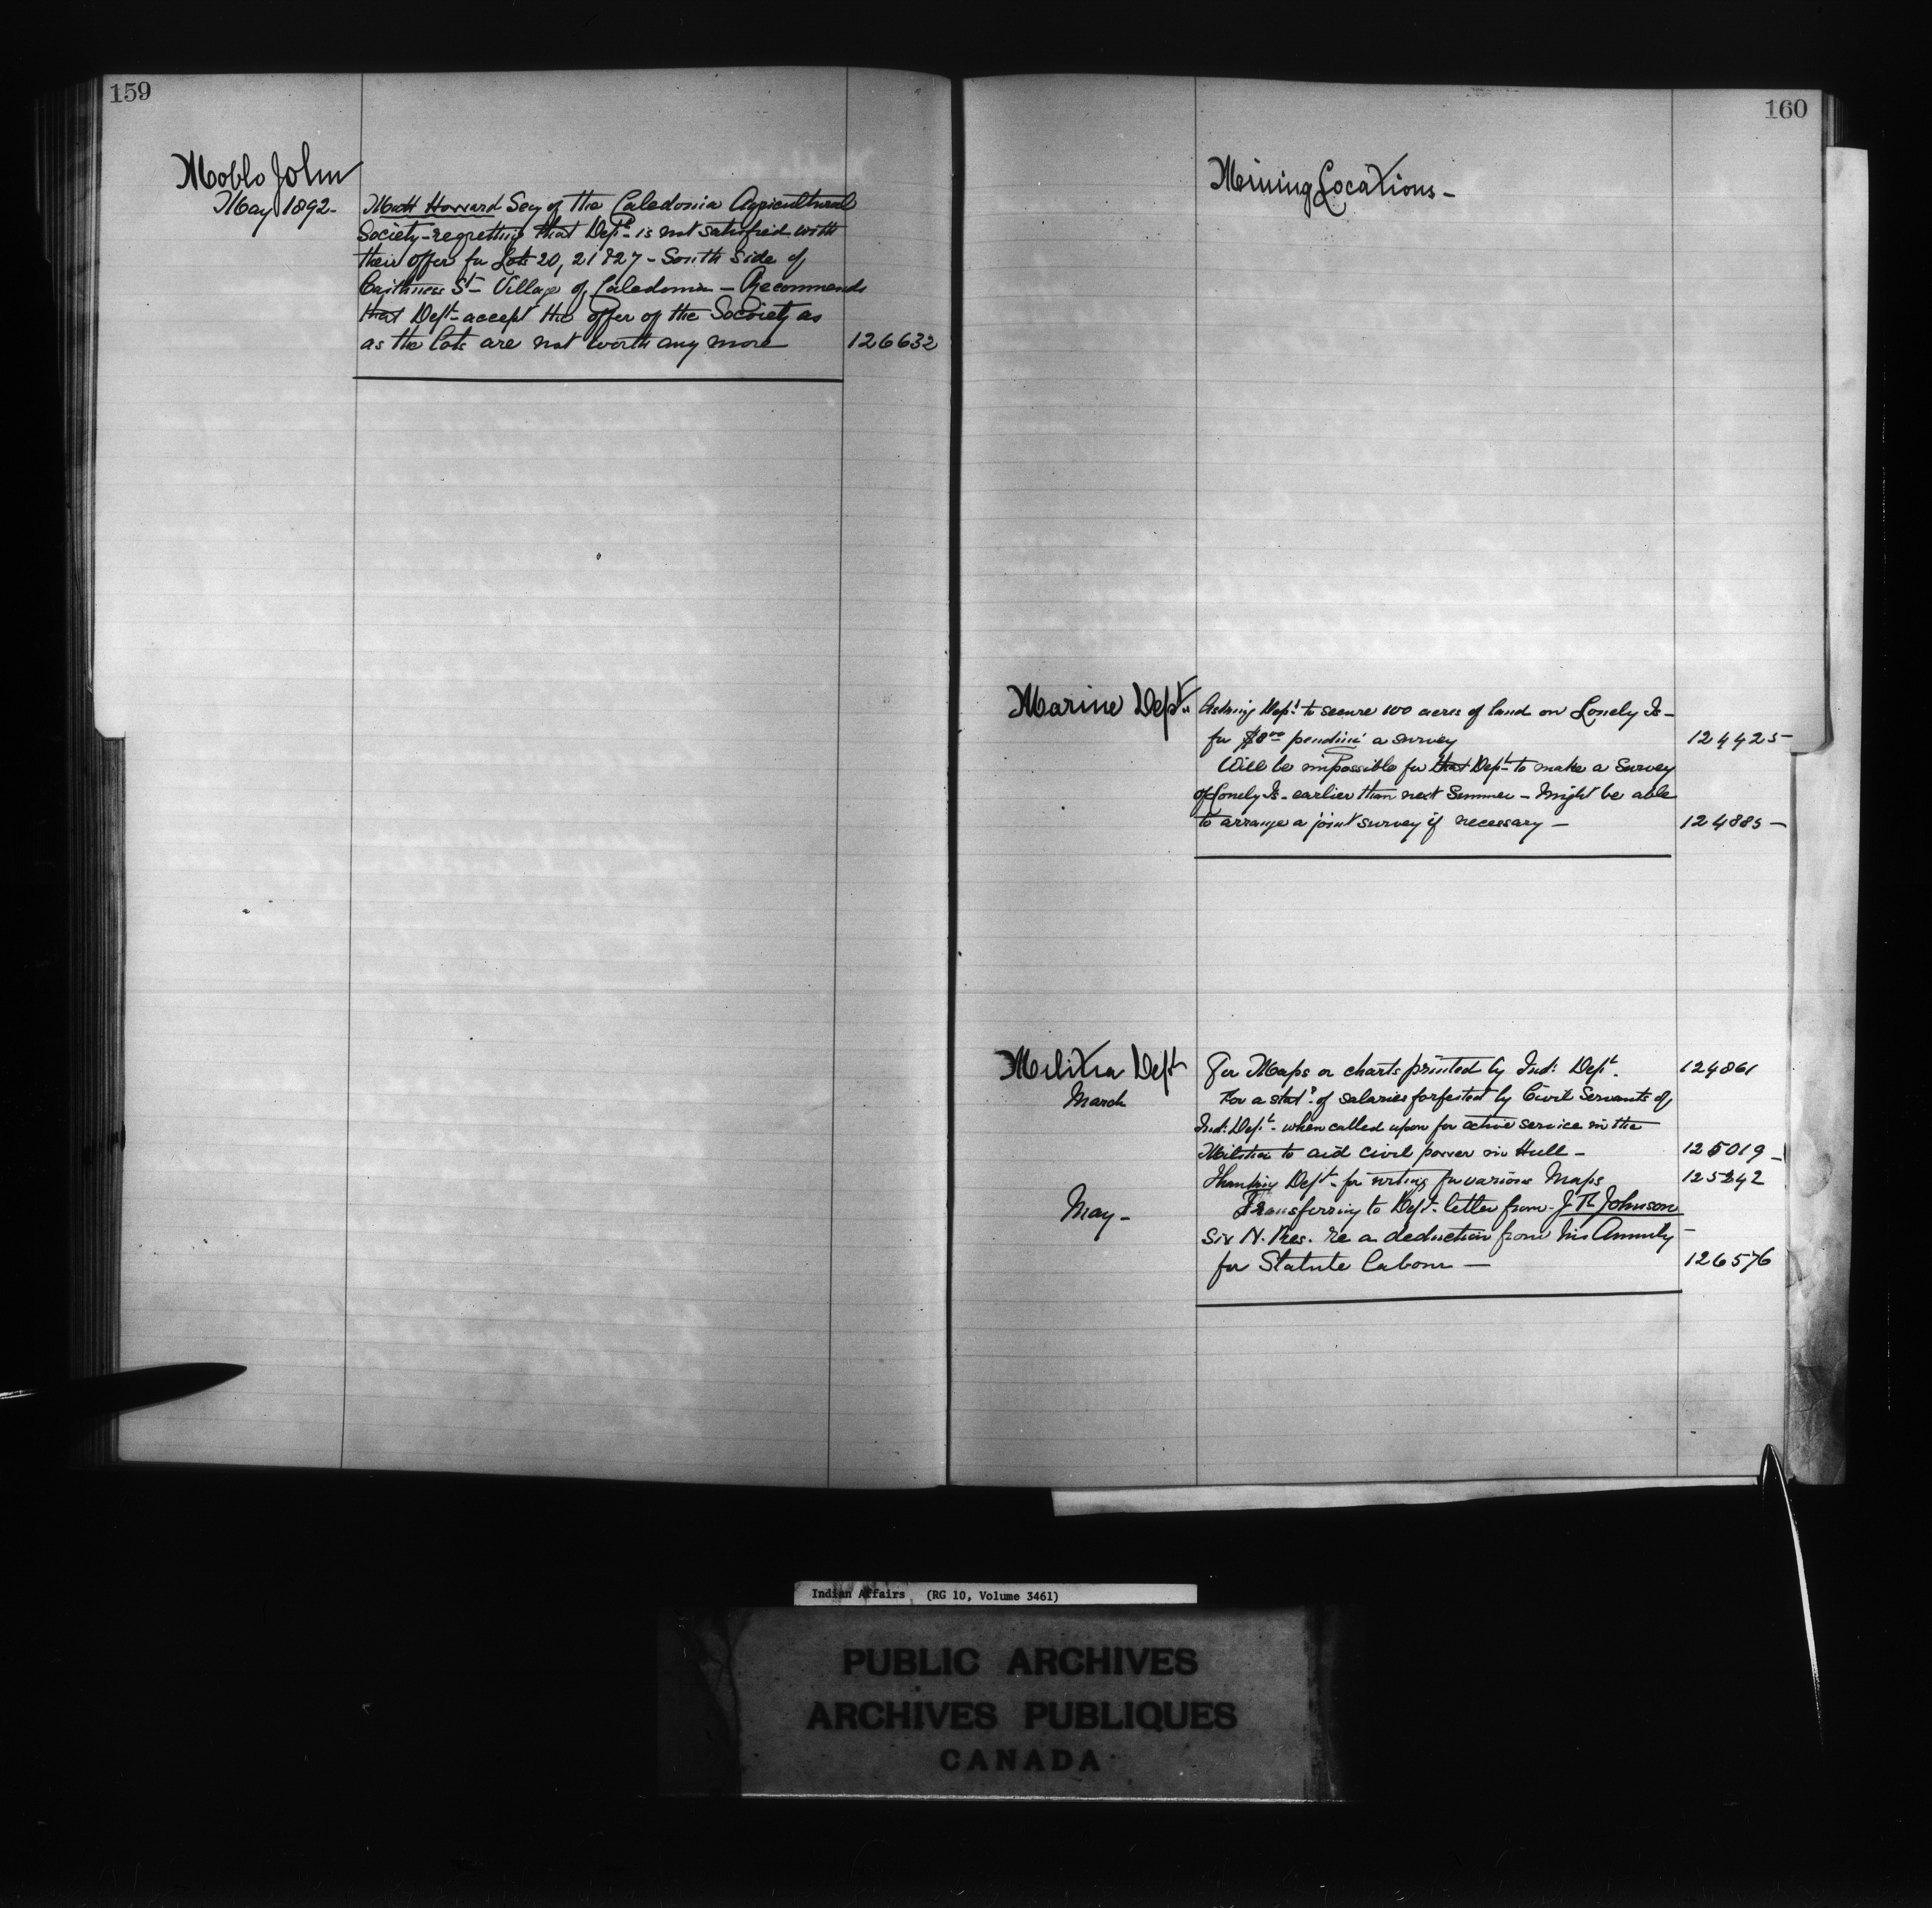 159
Moblo John
May 1892-
Matt Howard Secy of the Caledonia Agricultural
Society - regretting that Dept - is not satisfied with
their offer for Lots 20, 21 & 27 - South Side of
Caithness St - Village of Caledonia - Recommends
that Dept - accept the offer of the Society as
as the lots are not worth any more
126632
160
Mining Locations -
Marine Dept
Asking Dept to secure 100 acres of land on Lonely Is -
for $8 00 pending a survey
124425
Will be impossible for that Dept - to make a Survey
of Lonely Is - earlier than next Summer - Might be able
to arrange a joint survey if necessary -
124885 -
Militia Dept
For Maps or charts printed by Ind: Dept.
124861
March
For a stat. of salaries forfeited by Civil Servants of
Ind: Dept - when called upon for active service in the
Militia to aid civil power in Hull -
125019 -
Thanking Dept - for writing for various Maps
125242
May -
Transferring to Dept. letter from J R Johnson
Six N. Res. re a deduction from his Annuity -
for Statute labour -
126576
Indian Affairs (RG 10, Volume 3461)
PUBLIC ARCHIVES
ARCHIVES PUBLIQUES
CANADA